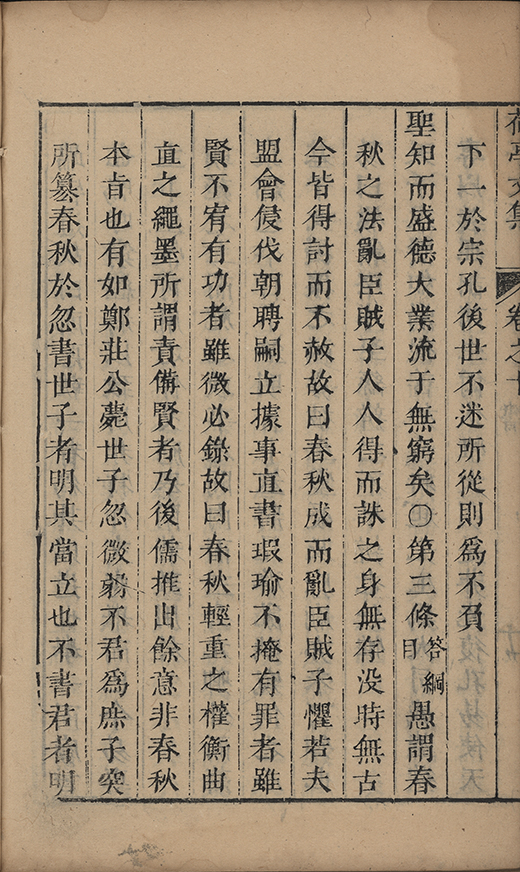 荷亭文集 卷之十
下一於宗孔後世不迷所從則爲不負
聖知而盛德大業流于無窮矣〇第三條答綱目愚謂春
秋之法亂臣賊子人人得而誅之身無存没時無古
今皆得討而不赦故曰春秋成而亂臣賊子懼若夫
盟會侵伐朝聘嗣立據事直書瑕瑜不掩有罪者雖
賢不宥有功者雖微必錄故曰春秋輕重之權衡曲
直之繩墨所謂責備賢者乃後儒推出餘意非春秋
本旨也有如鄭莊公薨世子忽微弱不君爲庶子突
所篡春秋於忽書世子者明其當立也不書君者明